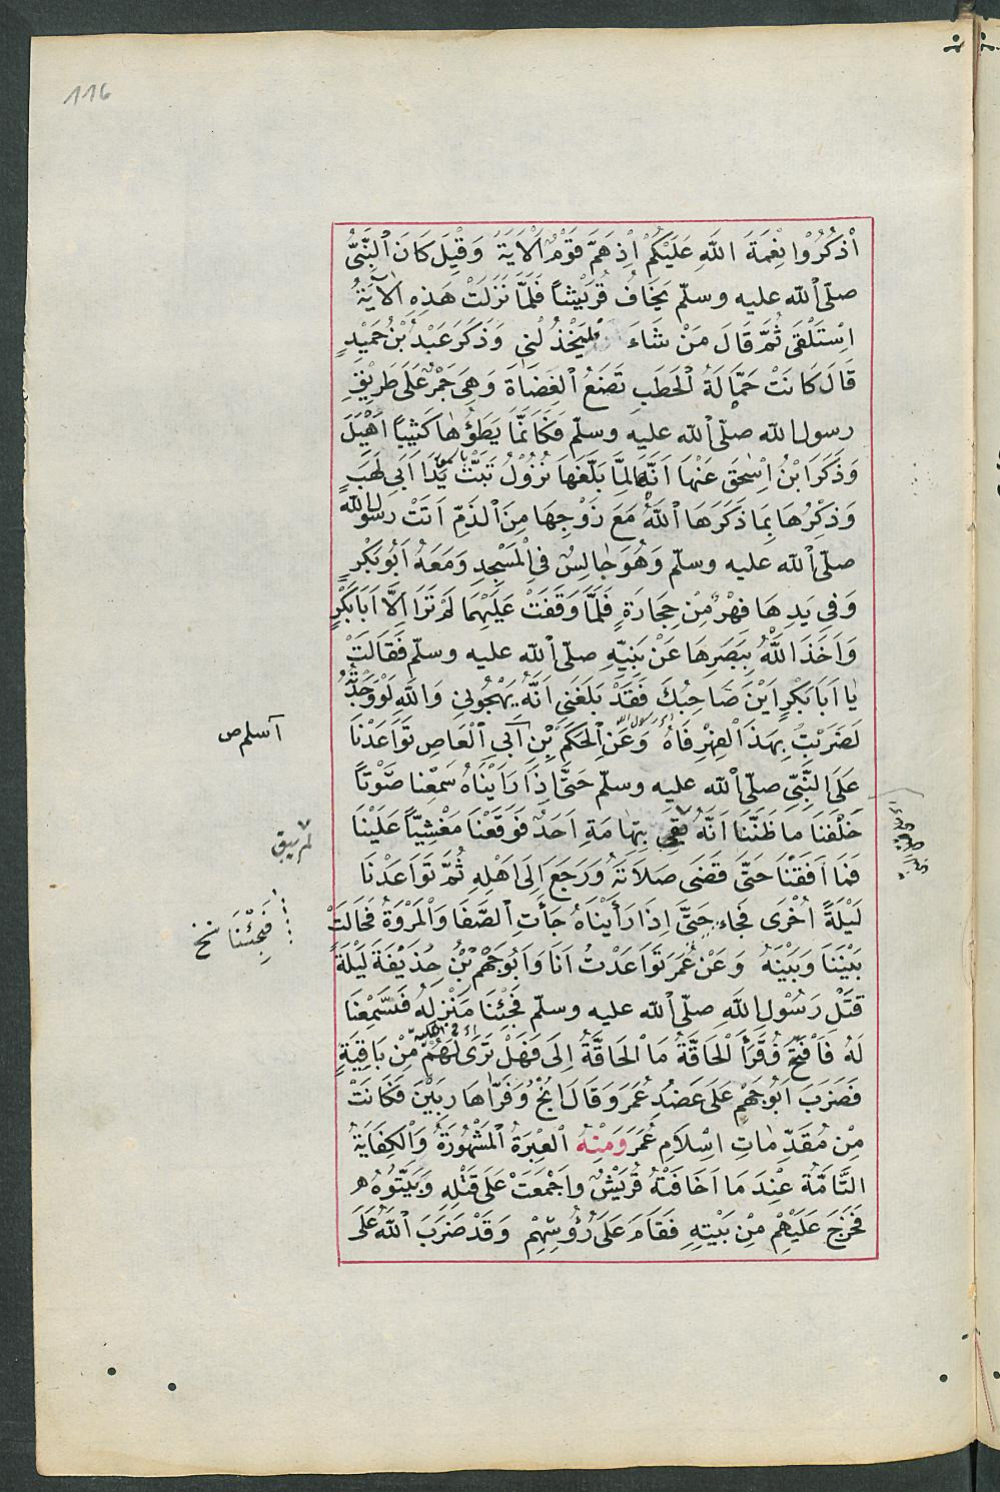 116
اُذْكُرُوا نِعْمَةَ اللّٰهِ عَلَيْكُمْ اِذْ هَمَّ قَوْمٌ اَلْاٰيَةَ وَقِيْلَ كَانَ النَّبِيُّ
صلّى اللّٰه عليه وسلّم يَخَافُ قُرَيْشًا فَلَمَّا نَزَلَتْ هَذِهِ الْاٰيَةُ
اِسْتَلْقَى ثُمَّ قَالَ مَنْ شَاءَ فَلْيَخْذُلْنِى وَذَكَرَ عَبْدُ بْنُ حُمَيْدٍ
قَالَ كَانَتْ حَمَّالَةُ الْحَطَبِ تَضَعُ الْعِضَاةَ وَهِىَ جَمْرٌ عَلَى طَرِيْقِ
رسول اللّٰه صلّى اللّٰه عليه وسلّم فَكَاَنَّمَا يَطَؤُهَا كَثِيبًا اَهْيَلَ
وَذَكَرَ ابْنُ اِسْحٰقَ عَنْهَا اَنَّهَا لَمَّا بَلَغَهَا نُزُوْلُ تَبَّتْ يَدَا اَبِى لَهَبٍ
وَذِكْرُهَا بِمَا ذَكَرَهَا اللّٰهُ مَعَ زَوْجِهَا مِنَ الذَّمِّ اَتَتْ رسول اللّٰه
صلّى اللّٰه عليه وسلّم وَهُوَ جَالِسٌ فِى الْمَسْجِدِ وَمَعَهُ اَبُو بَكْرٍ
وَفِى يَدِهَا فِهْرٌ مِنْ حِجَارَةٍ فَلَمَّا وَقَفَتْ عَلَيْهِمَا لَمْ تَرَ اِلَّا اَبَا بَكْرٍ
وَاَخَذَ اللّٰهُ بِبَصَرِهَا عَنْ نَبِيِّهِ صلّى اللّٰه عليه وسلّم فَقَالَتْ
يَا اَبَا بَكْرٍ اَيْنَ صَاحِبُكَ فَقَدْ بَلَغَنِى اَنَّهُ يَهْجُونِى وَاللّٰهِ لَوْ وَجَدْتُهُ
لَضَرَبْتُ بِهَذَا الْفِهْرِ فَاهُ وَعَنِ الْحَكَمِ بْنِ اَبِى الْعَاصِ تَوَاعَدْنَا
عَلَى النَّبِىِّ صلّى اللّٰه عليه وسلّم حَتَّى اِذَا رَاَيْنَاهُ سَمِعْنَا صَوْتًا
خَلْفَنَا مَا ظَنَنَّا اَنَّهُ بَقِىَ بِتِهَامَةِ اَحَدٌ فَوَقَعْنَا مَغْشِيًّا عَلَيْنَا
فَمَا اَفَقْنَا حَتَّى قَضَى صَلَاتَهُ وَرَجَعَ اِلَى اَهْلِهِ ثُمَّ تَوَاعَدْنَا
لَيْلَةً اُخْرَى فَجَاءَ حَتَّى اِذَا رَأَيْنَاهُ جَأَتِ الصَّفَا وَالْمَرْوَةُ فَحَالَتْ
بَيْنَنَا وَبَيْنَهُ وَعَنْ عُمَرَ تَوَاعَدْتُ اَنَا وَاَبُو جَهْمِ بْنُ حُذَيْفَةَ لَيْلَةً
قَتْلَ رَسُوْلِ اللّٰهِ صلّى اللّٰه عليه وسلّم فَجِئْنَا مَنْزِلَهُ فَسَمِعْنَا
لَهُ فَافْتَتَحَ وَقَرَأَ الْحَاقَّةُ مَا الْحَاقَّةُ اِلَى فَهَلْ تَرَى لَهُمْ مِّنْ بَاقِيَةٍ
فَضَرَبَ اَبُو جَهْمٍ عَلَى عَضُدِ عُمَرَ وَقَالَ انْجُ وَفَرَّا هَارِبَيْنِ فَكَانَتْ
مِنْ مُقَدِّمَاتِ اِسْلَامِ عُمَرَ وَمِنْهُ الْعِبْرَةُ الْمَشْهُورَةُ وَالْكِفَايَةُ
التَّامَّةُ عِنْدَ مَا اَخَافَتْهُ قُرَيْشٌ وَاَجْمَعَتْ عَلَى قَتْلِهِ وَبَيَّتُوهُ
فَخَرَجَ عَلَيْهِمْ مِنْ بَيْتِهِ فَقَامَ عَلَى رُؤُسِهِمْ وَقَدْ ضَرَبَ اللّٰهُ عَلَى
آسلم ص
لم يبق
فَجِئْنَا نخ